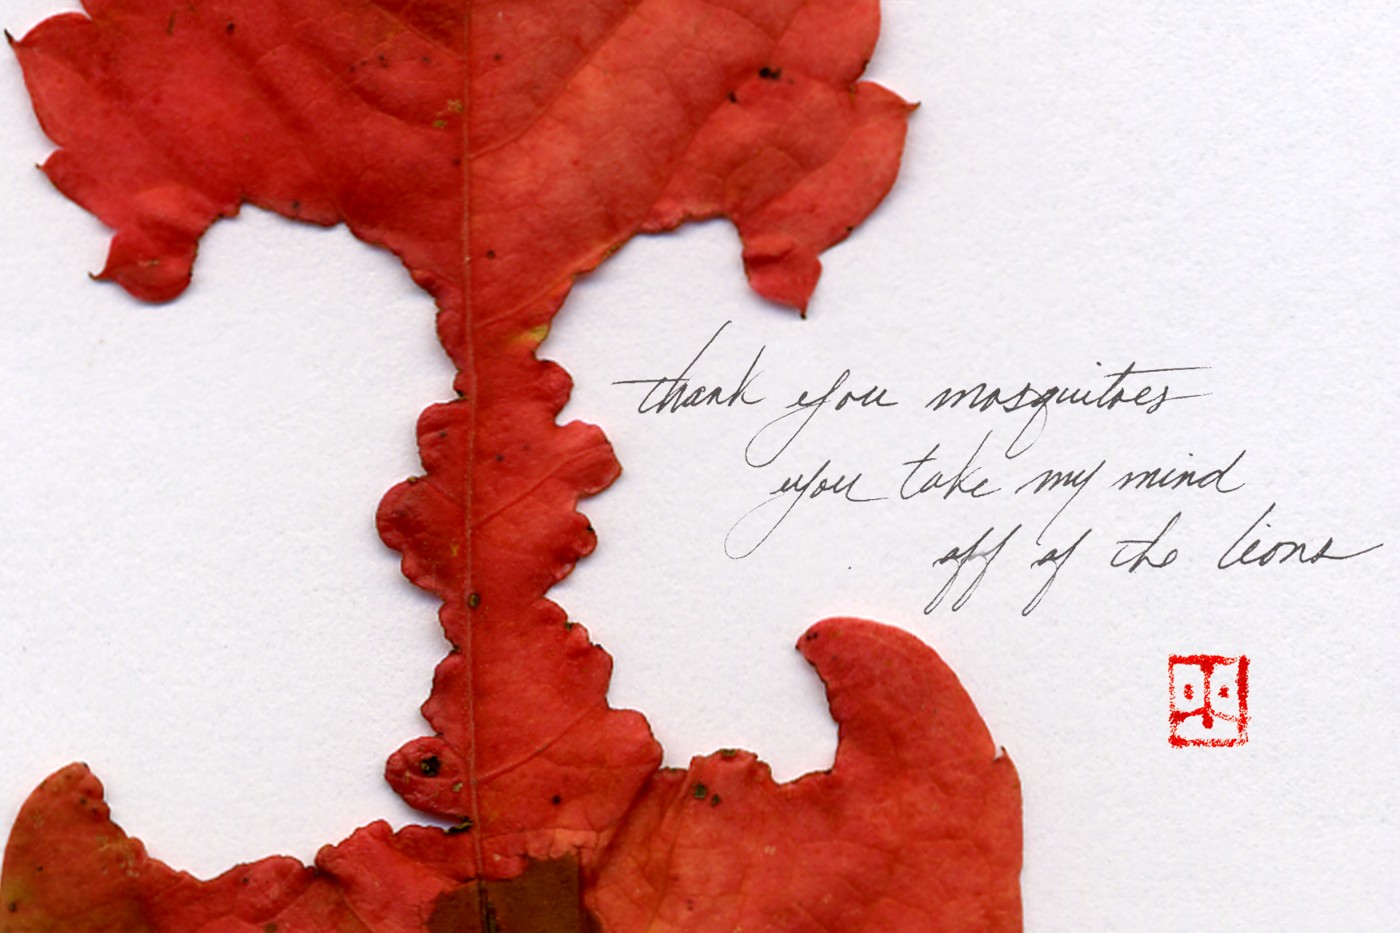 thank you mosquitoes
you take my mind
off of the lions